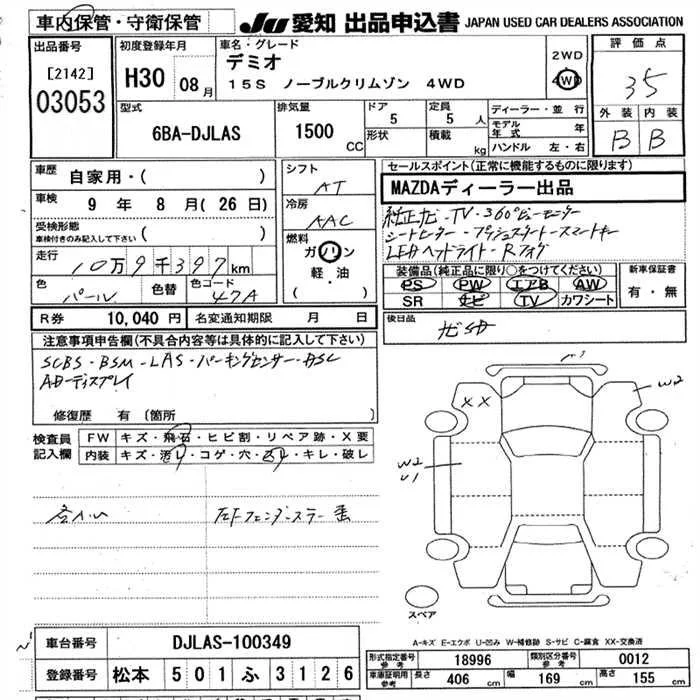 車内保管・守衛保管
JU 愛知 出品申込書 JAPAN USED CAR DEALERS ASSOCIATION
出品番号
[2142]
03053
初度登録年月
H30 08月
車名・グレード
デミオ
15S ノーブルクリムゾン 4WD
2WD
4WD
評価点
35
外装 内装
B B
型式
6BA-DJLAS
排気量
1500 CC
ドア
5
形状
定員
5 人
積載
kg
ディーラー・並行
モデル年式 年
ハンドル 左・右
車歴
自家用・( )
車検
9 年 8 月(26日)
受検形態
車検付きのみ記入して下さい ( )
走行
10万9千397km
色
パール
色替
色コード
47A
シフト
AT
冷房
AAC
燃料
ガソリン
軽・油
( )
セールスポイント(正常に機能するものに限ります)
MAZDAディーラー出品
純正ナビ・TV・360°ビューモニター
シートヒーター・プッシュスタート・スマートキー
LEDヘッドライト・Rフォグ
装備品(純正品に限り○をつけてください)
PS PW エアB AW
SR ナビ TV カワシート
新車保証書
有・無
後日品
ナビSD
R券 10,040 円 名変通知期限 月 日
注意事項申告欄(不具合内容等は具体的に記入して下さい)
SCBS・BSM・LAS・パーキングセンサー・DSC
ADディスプレイ
修復歴 有〔箇所 〕
検査員記入欄
FW キズ・飛石・ヒビ割・リペア跡・X要
内装 キズ・汚れ・コゲ・穴・スレ・キレ・破れ
XX
W2
W2
U1
スペア
A-キズ E-エクボ U-凹み W-補修跡 S-サビ C-腐食 XX-交換済
車台番号 DJLAS-100349
登録番号 松本 501 ふ 3126
形式指定番号 参考 18996 類別区分番号 参考 0012
車庫証明用 参考 長さ 406 cm 幅 169 cm 高さ 155 cm